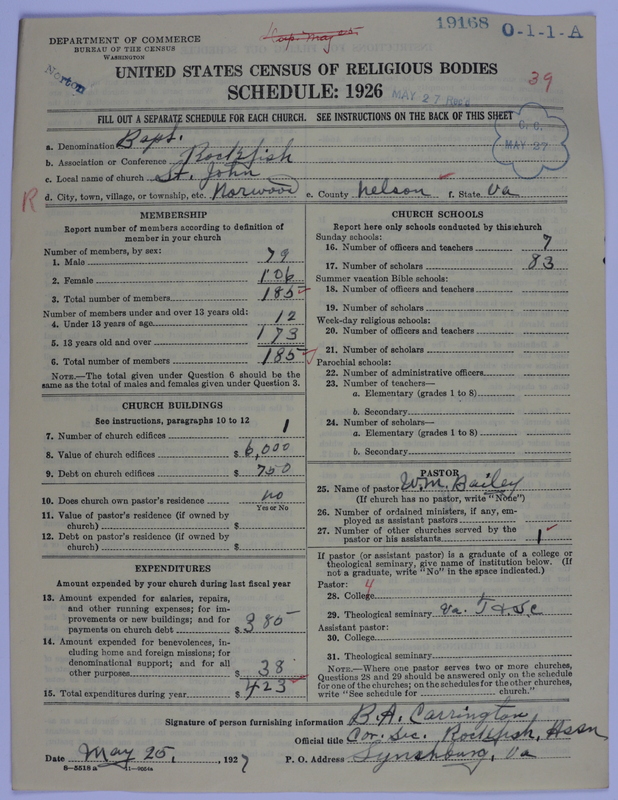 19168 O-1-1-A
DEPARTMENT OF COMMERCE
BUREAU OF THE CENSUS
WASHINGTON
Norton
UNITED STATES CENSUS OF RELIGIOUS BODIES
SCHEDULE: 1926
39
MAY 27 Rec'd
FILL OUT A SEPARATE SCHEDULE FOR EACH CHURCH. SEE INSTRUCTIONS ON THE BACK OF THIS SHEET
C. C.
MAY 27
a. Denomination Bapt.
b. Association or Conference Rockfish
c. Local name of church St. John
R
d. City, town, village, or township, etc. Norwood e. County Nelson f. State Va
MEMBERSHIP
Report number of members according to definition of
member in your church
Number of members, by sex:
1. Male 79
2. Female 106
3. Total number of members 185
Number of members under and over 13 years old:
4. Under 13 years of age 12
5. 13 years old and over 173
6. Total number of members 185
NOTE.—The total given under Question 6 should be the
same as the total of males and females given under Question 3.
CHURCH BUILDINGS
See instructions, paragraphs 10 to 12
7. Number of church edifices 1
8. Value of church edifices $ 6,000
9. Debt on church edifices $ 750
10. Does church own pastor's residence no
Yes or No
11. Value of pastor's residence (if owned by
church) $
12. Debt on pastor's residence (if owned by
church) $
EXPENDITURES
Amount expended by your church during last fiscal year
13. Amount expended for salaries, repairs,
and other running expenses; for im-
provements or new buildings; and for
payments on church debt $ 385
14. Amount expended for benevolences, in-
cluding home and foreign missions; for
denominational support; and for all
other purposes 38
15. Total expenditures during year $ 423
CHURCH SCHOOLS
Report here only schools conducted by this church
Sunday schools:
16. Number of officers and teachers 7
17. Number of scholars 83
Summer vacation Bible schools:
18. Number of officers and teachers
19. Number of scholars
Week-day religious schools:
20. Number of officers and teachers
21. Number of scholars
Parochial schools:
22. Number of administrative officers
23. Number of teachers—
a. Elementary (grades 1 to 8)
b. Secondary
24. Number of scholars—
a. Elementary (grades 1 to 8)
b. Secondary
PASTOR
25. Name of pastor W.M. Bailey
(If church has no pastor, write "None")
26. Number of ordained ministers, if any, em-
ployed as assistant pastors
27. Number of other churches served by the
pastor or his assistants 1
If pastor (or assistant pastor) is a graduate of a college or
theological seminary, give name of institution below. (If
not a graduate, write "No" in the space indicated.)
Pastor: 4
28. College
29. Theological seminary Va. T & Sc
Assistant pastor:
30. College
31. Theological seminary
NOTE.—Where one pastor serves two or more churches,
Questions 28 and 29 should be answered only on the schedule
for one of the churches; on the schedules for the other churches,
write "See schedule for church."
Signature of person furnishing information B.A. Carrington,
Official title Cor. Sec. Rockfish, Assn
Date May 25, 1927 P. O. Address Lynchburg, Va
8-5518 a 11-9054a